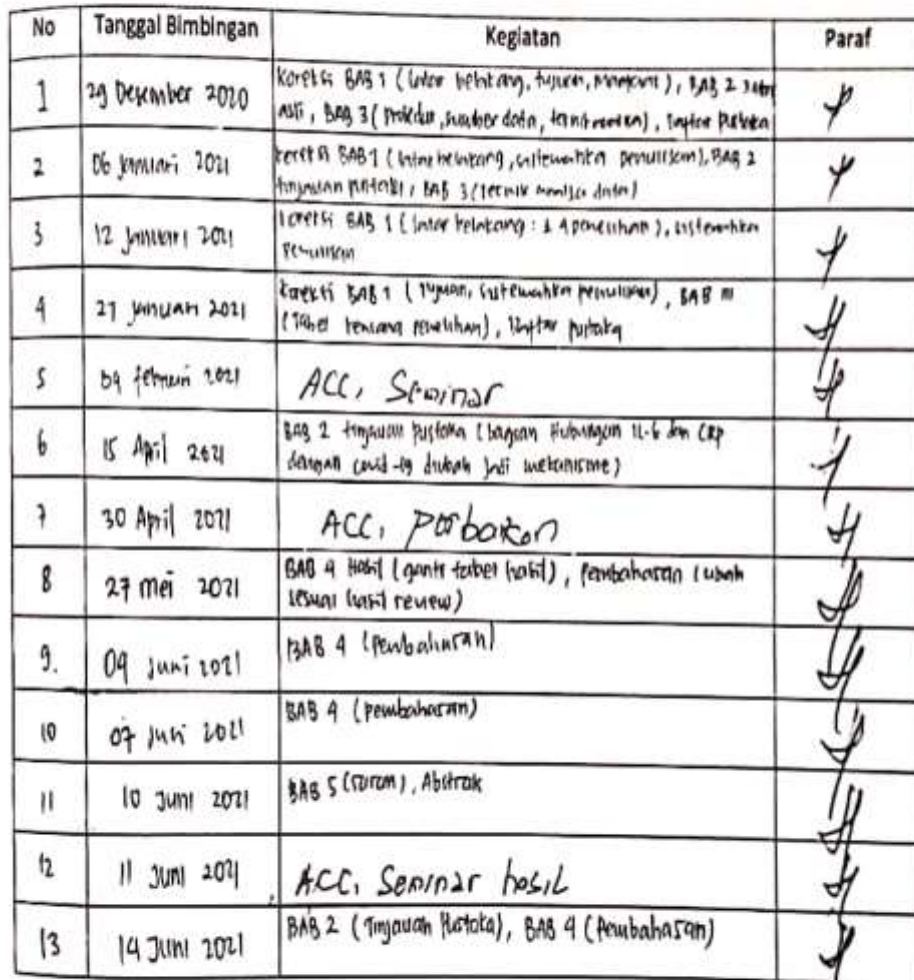 No Tanggal Bimbingan Kegiatan Paraf
1 29 Desember 2020 Koreksi BAB 1 (latar belakang, tujuan, manfaat), BAB 2
BAB 3 (prosedur, sumber data, ), Daftar Pustaka
2 06 Januari 2021 Koreksi BAB 1 (latar belakang, sistematika penulisan), BAB 2
tinjauan pustaka, BAB 3 (teknik analisa data)
3 12 Januari 2021 Koreksi BAB 1 (latar belakang : 4 penelitian), sistematika
Penulisan
4 27 Januari 2021 Koreksi BAB 1 (Tujuan, sistematika penulisan), BAB III
(Tabel rencana penelitian), Daftar pustaka
5 Februari 2021 ACC, Seminar
6 15 April 2021 BAB 2 tinjauan pustaka (bagian Hubungan IL-6 dan CRP
dengan covid-19 diubah jadi mekanisme)
7 30 April 2021 ACC, perbaikan
8 27 Mei 2021 BAB 4 Hasil (ganti tabel hasil), Pembahasan (ubah
sesuai hasil review)
9. Juni 2021 BAB 4 (Pembahasan)
10 07 Juni 2021 BAB 4 (pembahasan)
11 10 Juni 2021 BAB 5 (saran), Abstrak
12 11 Juni 2021 ACC, Seminar hasil
13 14 Juni 2021 BAB 2 (Tinjauan Pustaka), BAB 4 (Pembahasan)